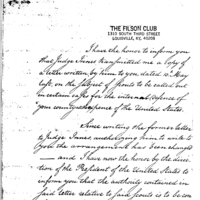 THE FILSON CLUB
1310 SOUTH THIRD STREET
LOUISVILLE, KY. 40208
I have the honor to inform you
that Judge Innes transmitted me a copy of
a letter written by him to you dated 12 May
last, on the subject of scouts to be called out
in certain cases for the internal defence of
your country at expense of the United States.
Since writing the former letter
to Judge Innes
the arrangement has been changed
— and I have now the honor by the direc-
tion of the President of the United States to
inform you that the authority contained in
said letter relative to said scouts is to be con